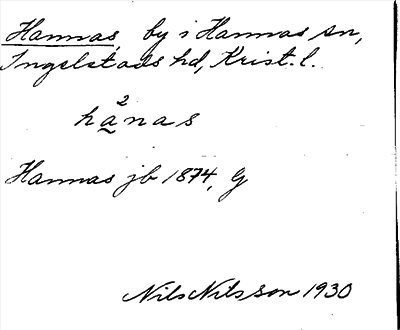 Hannas, by i Hannas sn,
Ingelstads hd, Krist. l.
2
hanas
Hannas jb 1874, G
Nils Nilsson 1930